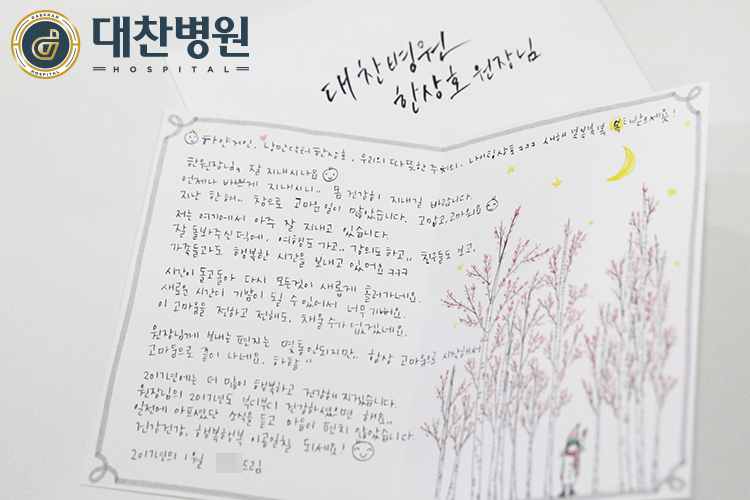 DAECHAN
HOSPITAL
대찬병원
HOSPITAL
대찬병원
한상호 원장님
하얀거인, 낭만닥터 한상호, 우리의 따뜻한 주치의, 나이팅상호 ㅋㅋㅋ 새해 복복복복 복 받으세욧!
한원장님, 잘 지내시나요
언제나 바쁘게 지내시니.. 몸 건강히 지내길 바랍니다.
지난 한해.. 참으로 고마운 일이 많았습니다. 고맙고,고마워요
저는 여기에서 아주 잘 지내고 있습니다.
잘 돌봐주신 덕에, 여행도 가고.. 강의도 하고.. 친구들도 보고,
가족들과도 행복한 시간을 보내고 있어요 ㅋㅋㅋ
시간이 돌고돌아 다시 모든것이 새롭게 흘러가네요.
새로운 시간이 기쁨이 될 수 있어서 너무 기뻐요.
이 고마움을 전하고 전해도, 채울 수가 없겠네요.
원장님께 보내는 편지는 몇통 안되지만.. 항상 고마움으로 시작해서
고마움으로 끝이 나네요. 하핫"
2017년에는 더 많이 행복하고 건강해 지겠습니다.
원장님의 2017년도 부디부디 건강하셨으면 해요..
일전에 아프셨단 소식을 듣고 마음이 편치 않았습니다.
건강건강, 행복행복 이공일칠 되세요!
2017년의 1월 드림